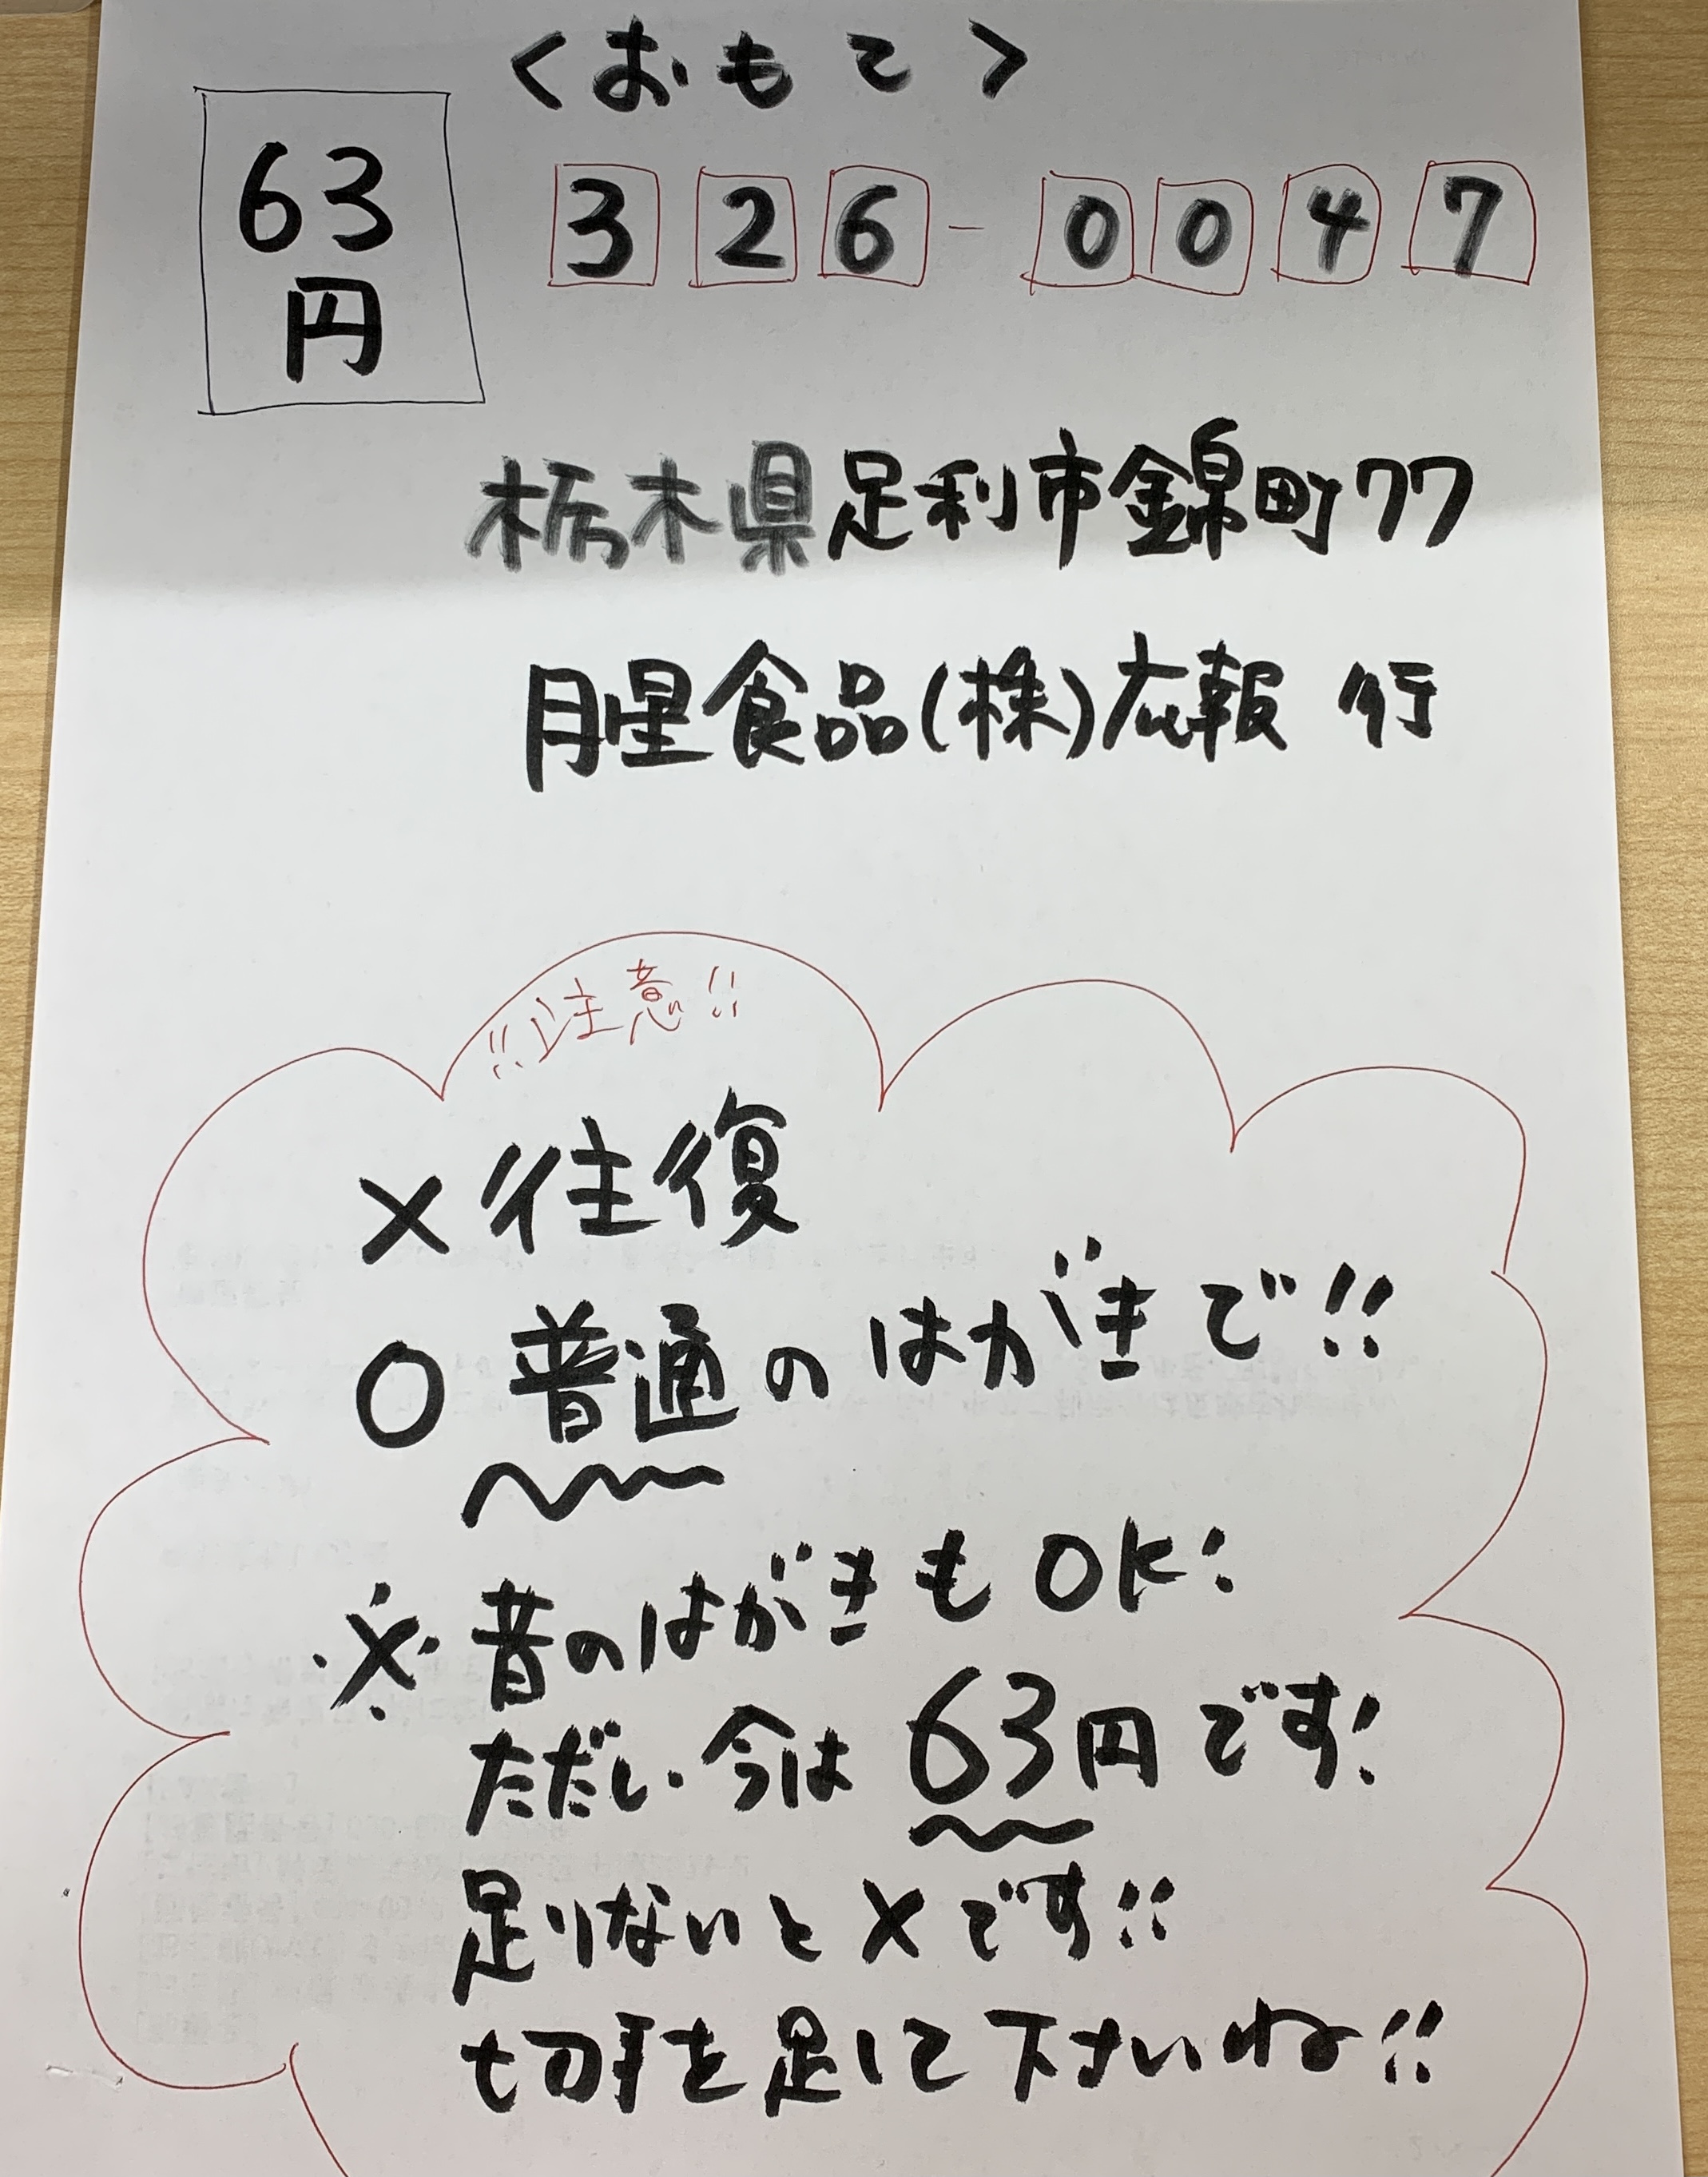 <おもて>
63
円
326-0047
栃木県足利市錦町77
月星食品(株)広報 行
!!注意!!
×往復
○普通のはがきで!!
※昔のはがきもOK!
ただし今は63円です!
足りないと×です!!
切手を足して下さいね!!